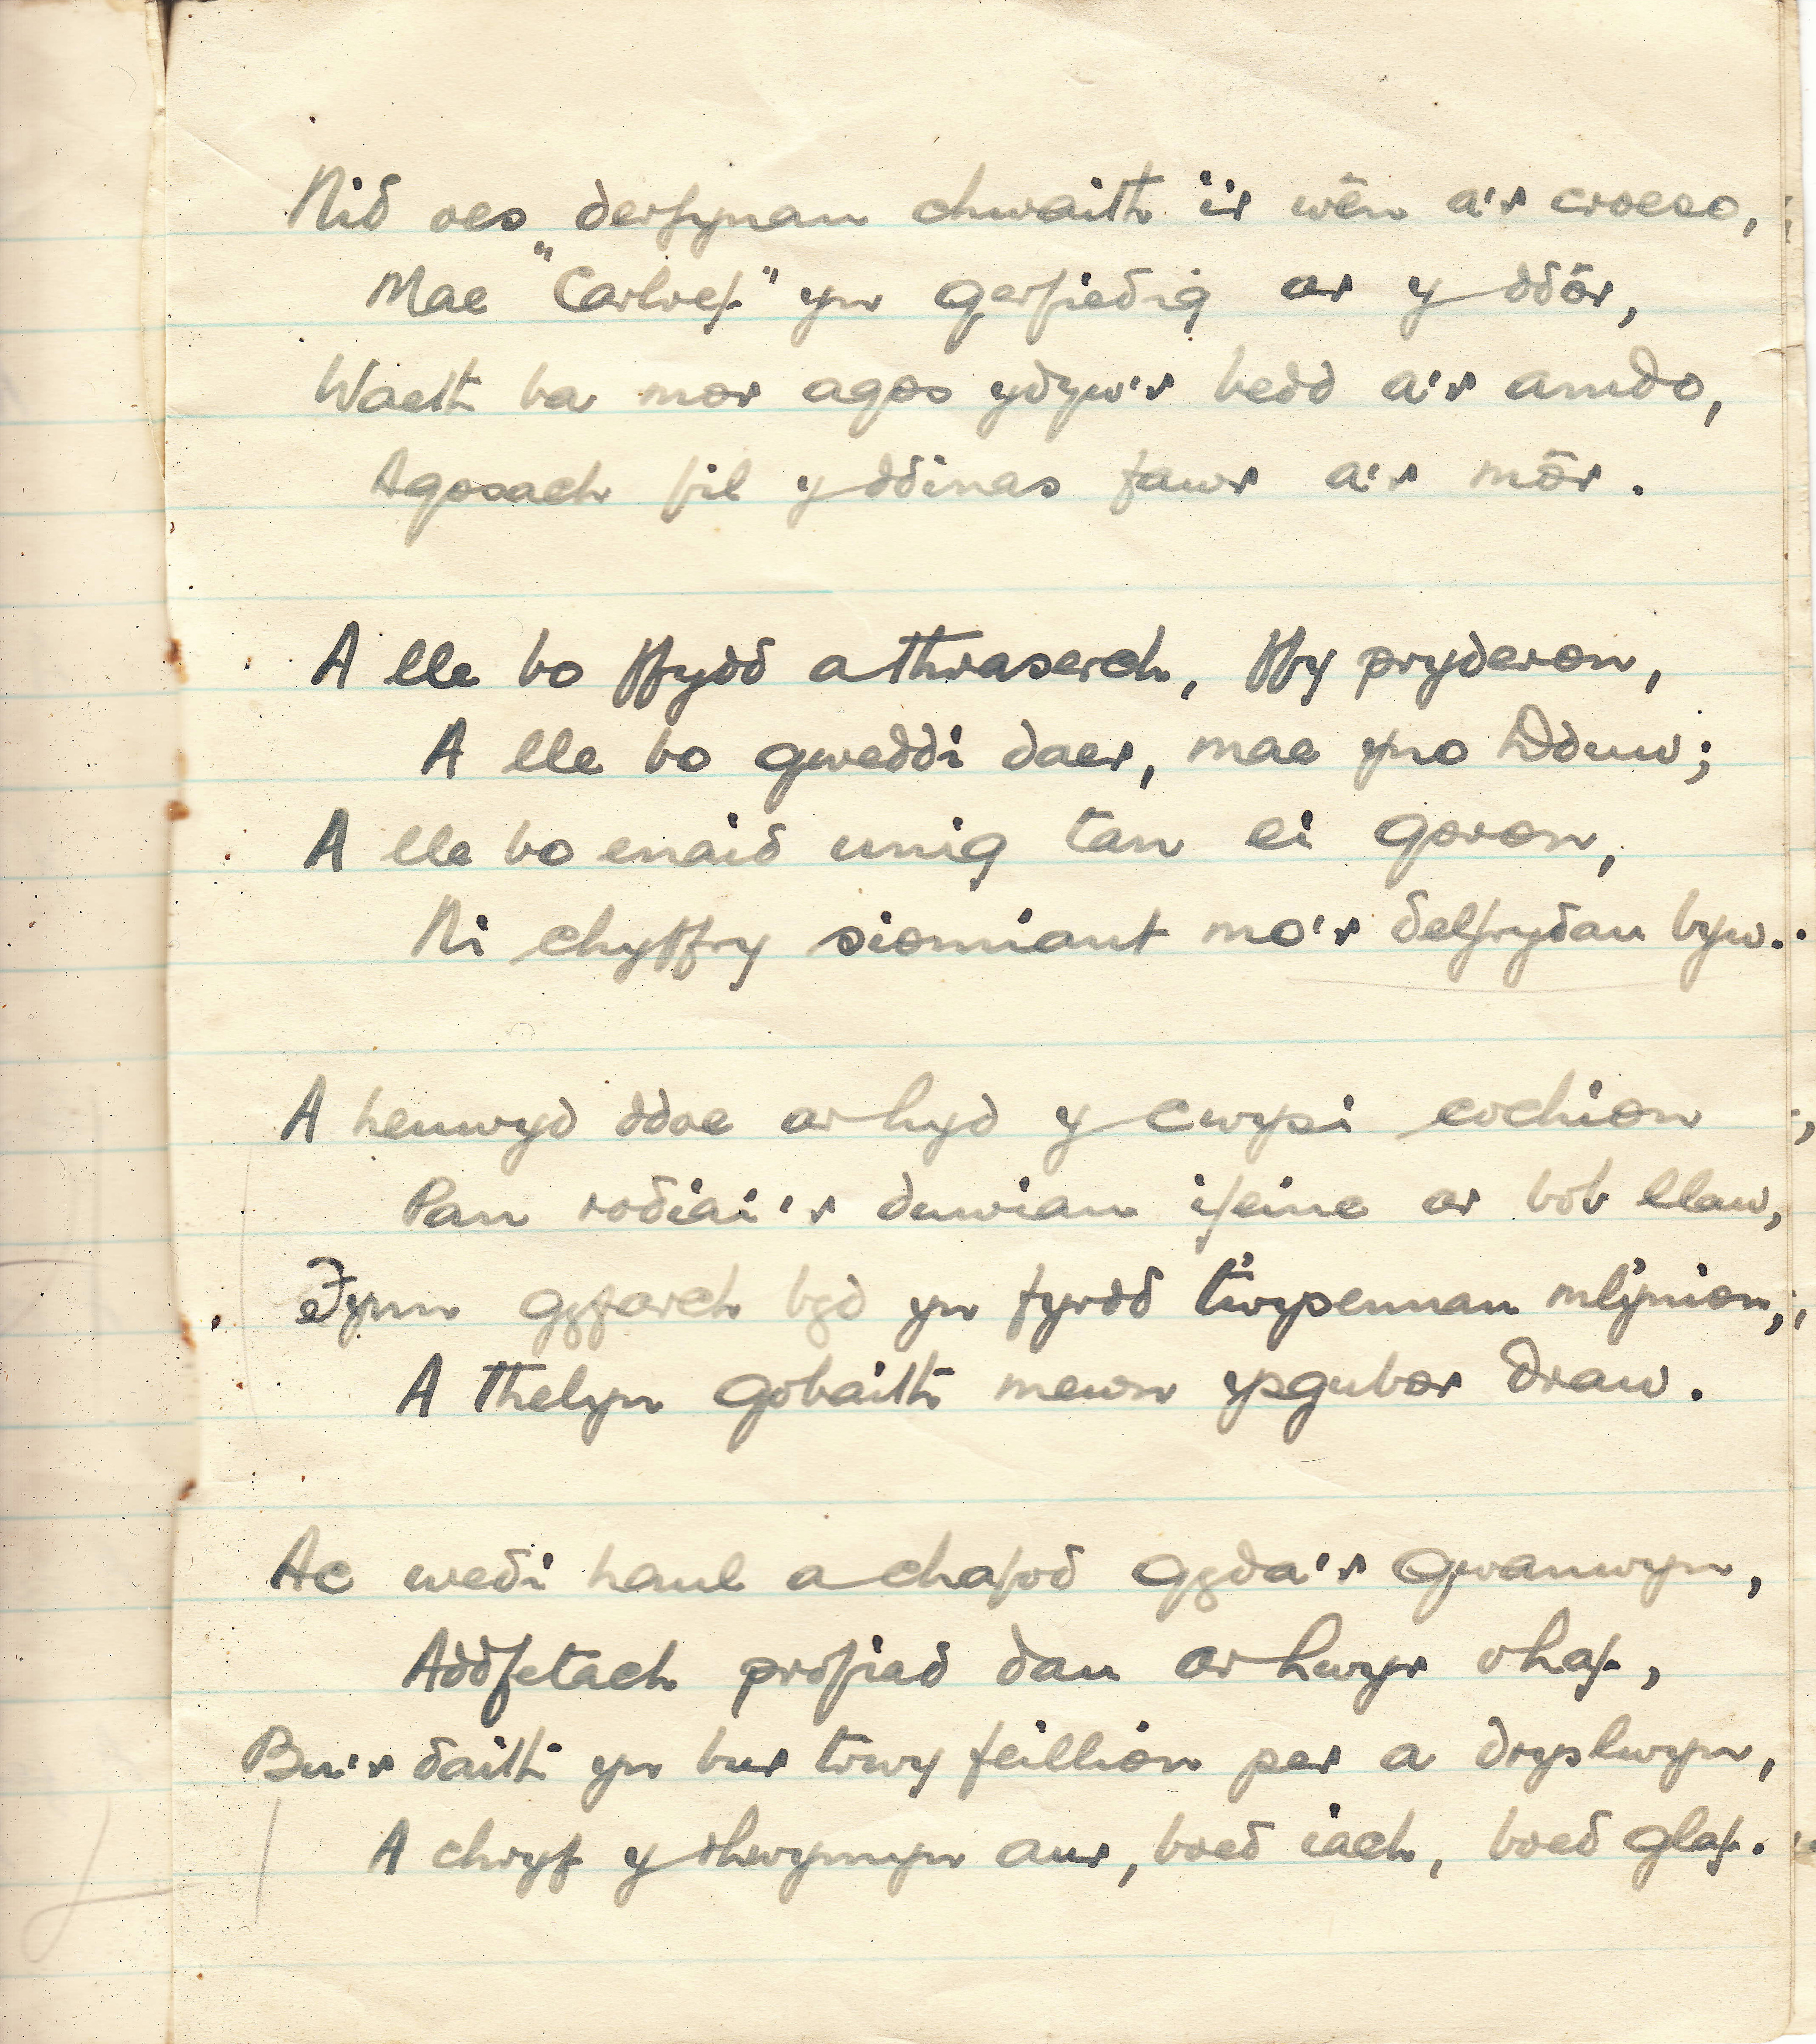 Nid oes derfynau chwaith i'r wên a'r croeso,
Mae "Cartref" yn gerfiedig ar y ddôr,
Waeth ba mor agos ydyw'r bedd a'r amdo,
Agosach fil y ddinas fawr a'r môr.
A lle bo ffydd a thraserch, ffy pryderon,
A lle bo gweddi daer, mae yno Dduw;
A lle bo enaid unig tan ei goron,
Ni chyffry siomiant mo'r delfrydau byw.
A heuwyd ddoe ar hyd y cwysi cochion
Pan rodiai'r duwiau ifainc ar bob llaw,
Fynn gyfarch byd yn fyrdd twysennau mlynion,
A thelyn gobaith mewn ysgubor draw.
Ac wedi haul a chafod gyda'r gwanwyn,
Addfetach profiad dau ar hwyr o haf,
Bu'r daith yn bur trwy feillion per a dryslwyn,
A chryf y rhwymyn aur, boed iach, boed glaf.